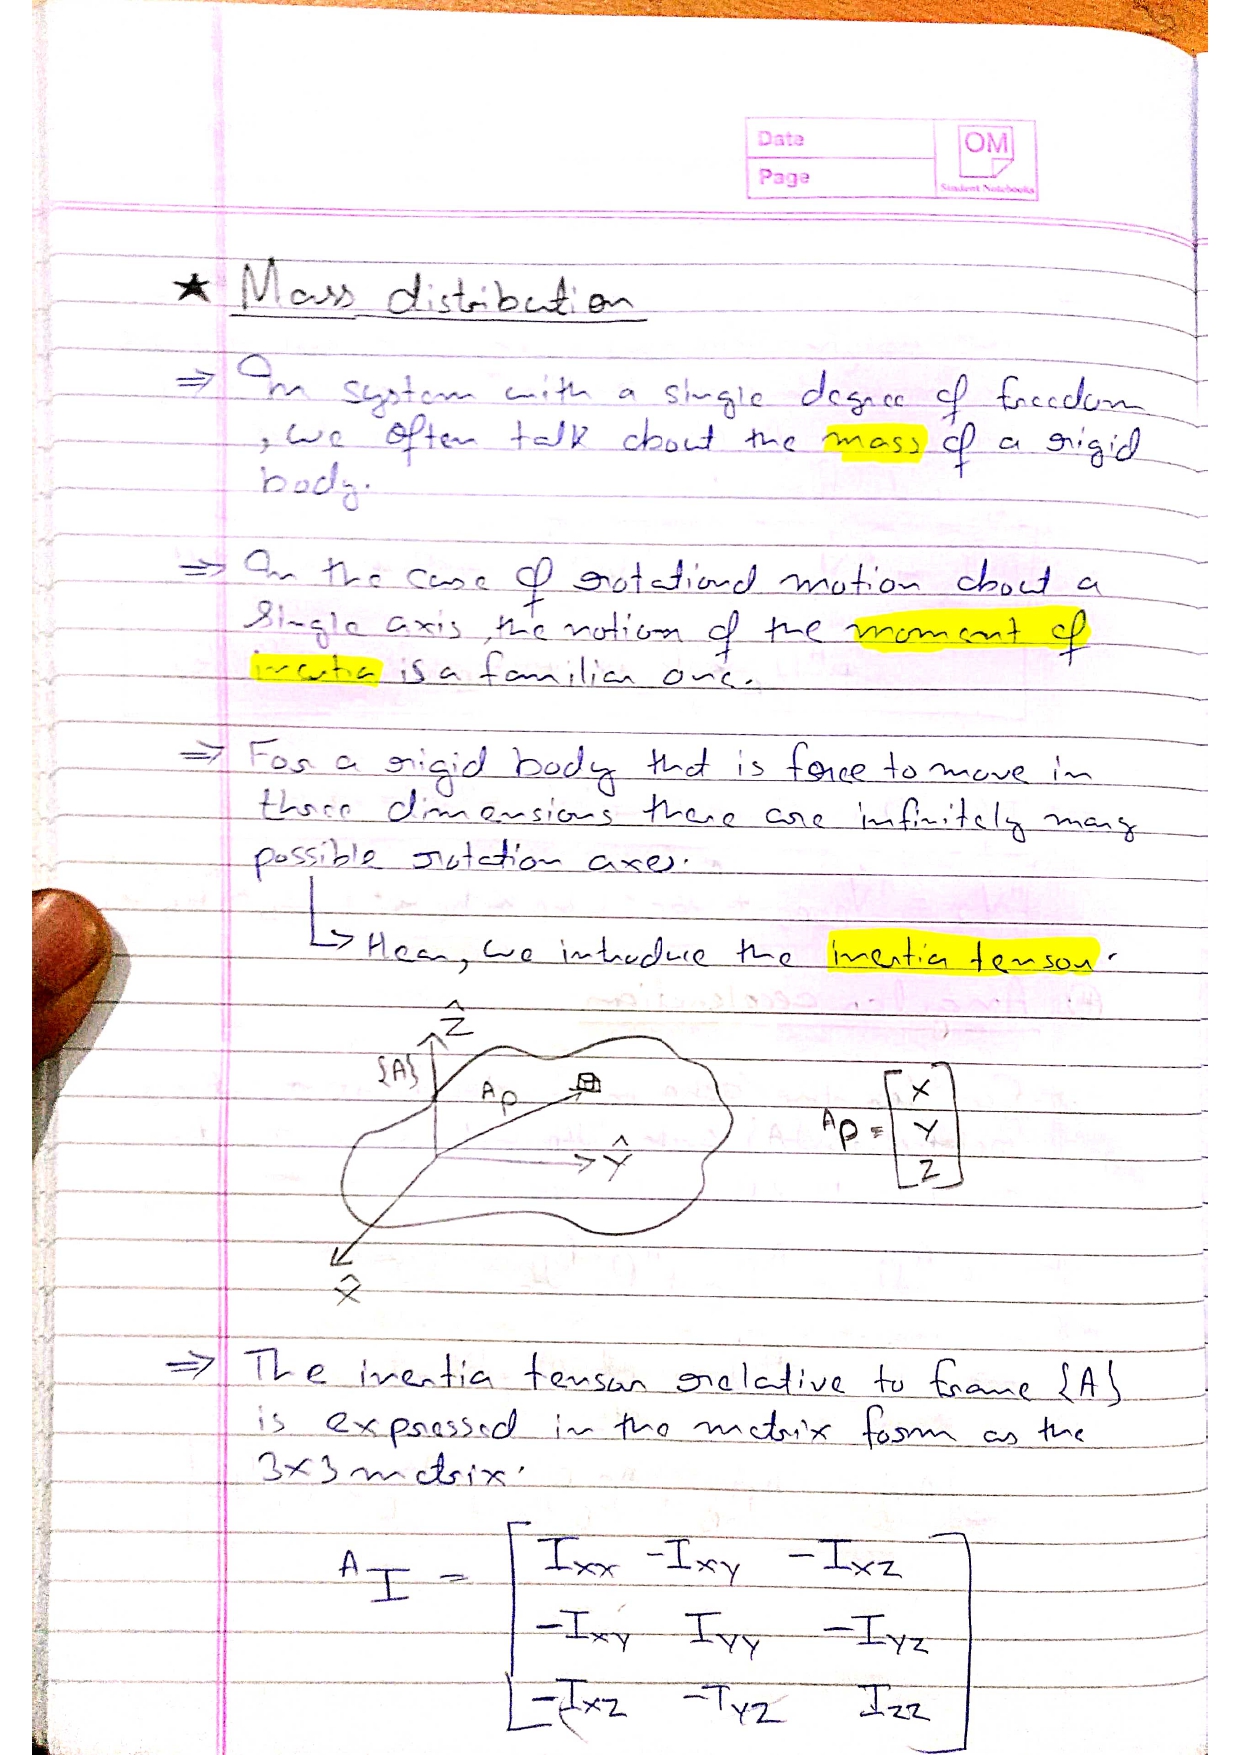 Date
OM
Page
Student Notebooks
★ Mass distribution
⇒ In system with a single degree of freedom
, we often talk about the mass of a rigid
body.
⇒ In the case of rotational motion about a
single axis, the notion of the moment of
inertia is a familiar one.
⇒ For a rigid body that is force to move in
three dimensions there are infinitely many
possible rotation axes.
↳ Hear, we introduce the inertia tensor.
Ẑ
{A}
ᴬP
Ŷ
X̂
ᴬP = [X
Y
Z]
⇒ The inertia tensor relative to frame {A}
is expressed in the matrix form as the
3×3 matrix.
ᴬI = [Ixx -Ixy -Ixz
-Ixy Iyy -Iyz
-Ixz -Iyz Izz]